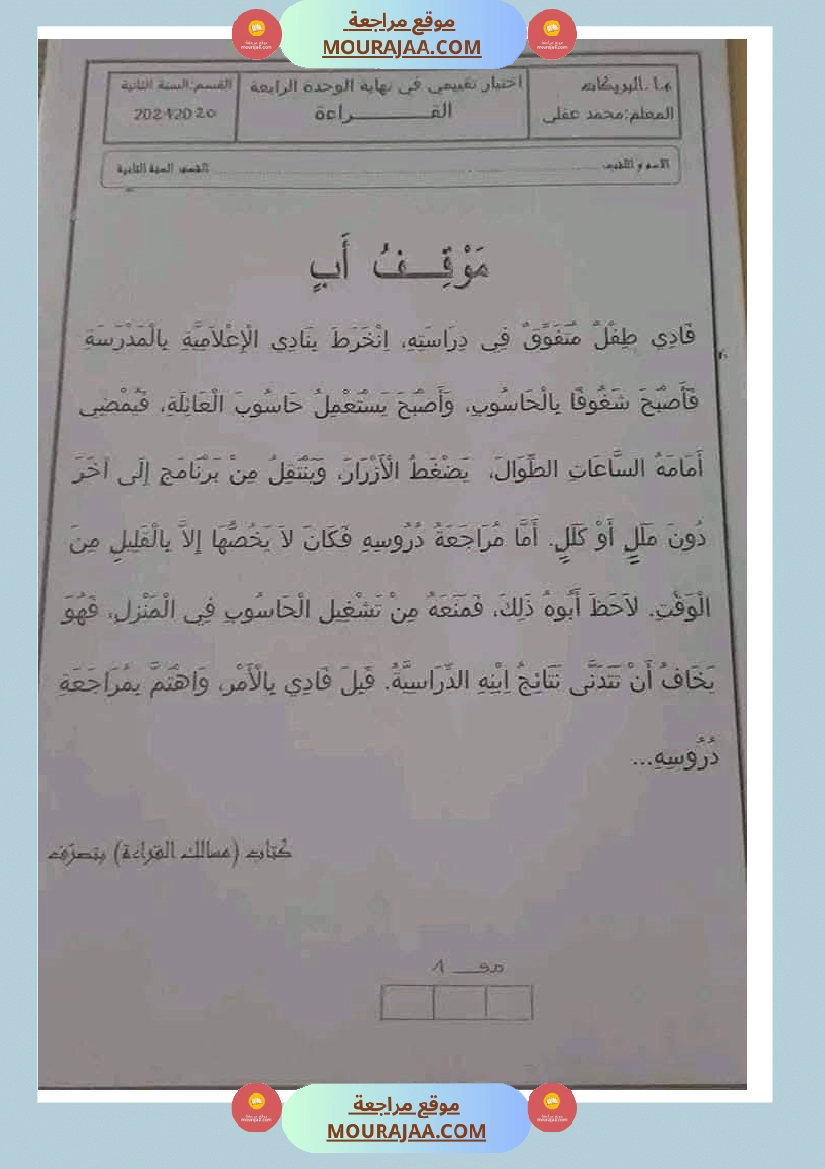 موقع مراجعة
MOURAJAA.COM
م.ا.البريكات
المعلم:محمد عقلي
اختبار تقييمي في نهاية الوحدة الرابعة
القـــــــــراءة
القسم:السنة الثانية
2021/2020
الاسم و اللقب: ........................................ القسم: السنة الثانية
مَوْقِـــفُ أَبٍ
فَادِي طِفْلٌ مُتَفَوِّقٌ فِي دِرَاسَتِهِ، اِنْخَرَطَ بِنَادِي الْإِعْلاَمِيَّةِ بِالْمَدْرَسَةِ
فَأَصْبَحَ شَغُوفًا بِالْحَاسُوبِ، وَأَصْبَحَ يَسْتَعْمِلُ حَاسُوبَ الْعَائِلَةِ، فَيُمْضِي
أَمَامَهُ السَّاعَاتِ الطِّوَالَ، يَضْغَطُ الْأَزْرَارَ، وَيَنْتَقِلُ مِنْ بَرْنَامَجٍ إِلَى آخَرَ
دُونَ مَلَلٍ أَوْ كَلَلٍ. أَمَّا مُرَاجَعَةُ دُرُوسِهِ فَكَانَ لاَ يَخُصُّهَا إِلاَّ بِالْقَلِيلِ مِنَ
الْوَقْتِ. لاَحَظَ أَبُوهُ ذَلِكَ، فَمَنَعَهُ مِنْ تَشْغِيلِ الْحَاسُوبِ فِي الْمَنْزِلِ، فَهُوَ
يَخَافُ أَنْ تَتَدَنَّى نَتَائِجُ اِبْنِهِ الدِّرَاسِيَّةُ. قَبِلَ فَادِي بِالْأَمْرِ، وَاهْتَمَّ بِمُرَاجَعَةِ
دُرُوسِهِ...
كتاب (مسالك القراءة) بتصرّف
مـعـ 1
موقع مراجعة
MOURAJAA.COM